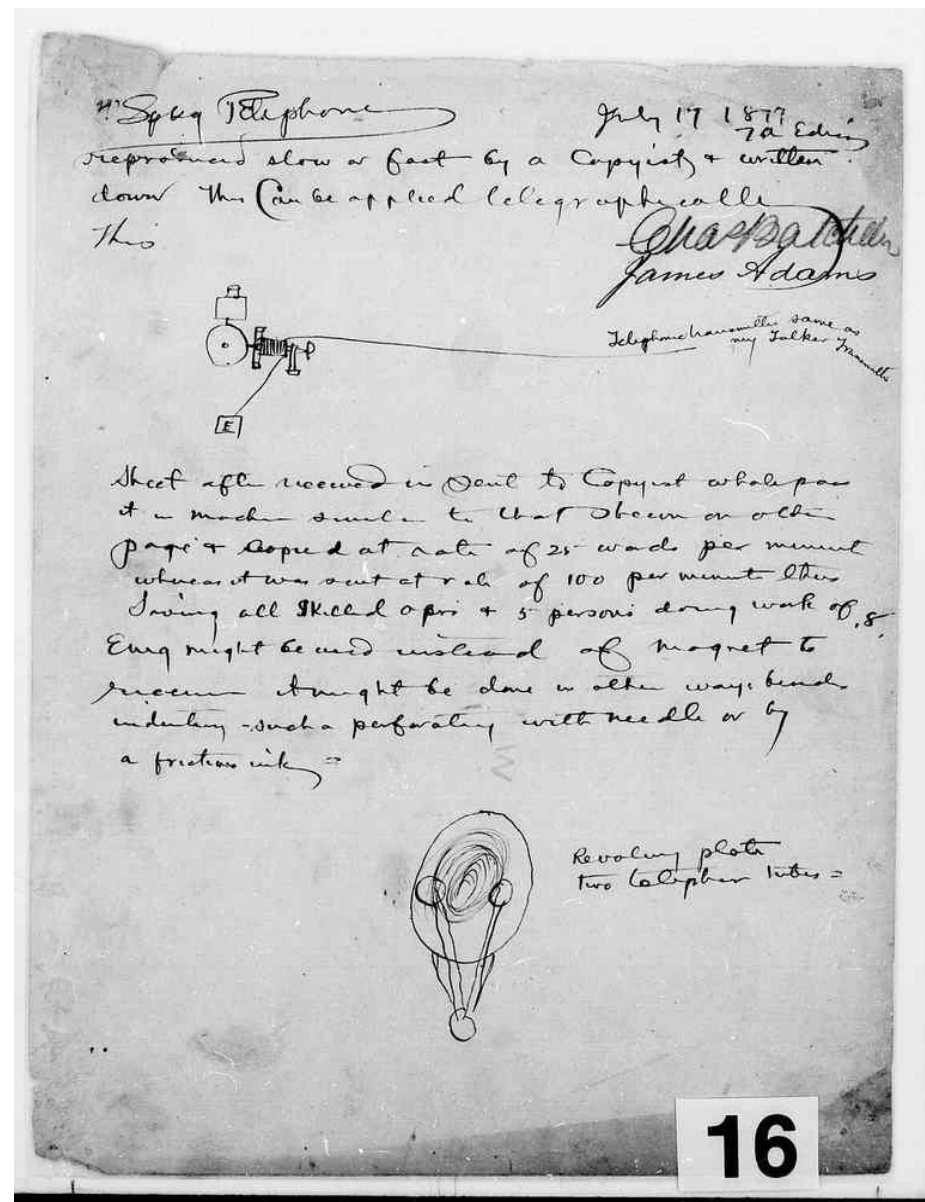 Spkg Telephone
July 17 1877
T A Edison
reproduced slow or fast by a Copyist & written
down This Can be applied telegraphically
This
Chas Batchelor
James Adams
Telephone transmitter same as
my Talker Transmitter
E
Sheet after received is Sent to Copyist who pass
it in machine similar to that shown on other
page & Copied at rate of 25 words per minute
whereas it was sent at rate of 100 per minute thus
Saving all Skilled oprs & 5 persons doing work of 8.
Emg might be used instead of magnet to
receive it might be done in other ways besides
indenting - such as perforating with needle or by
a friction ink =
Revolving plate
two telephone tubes =
16